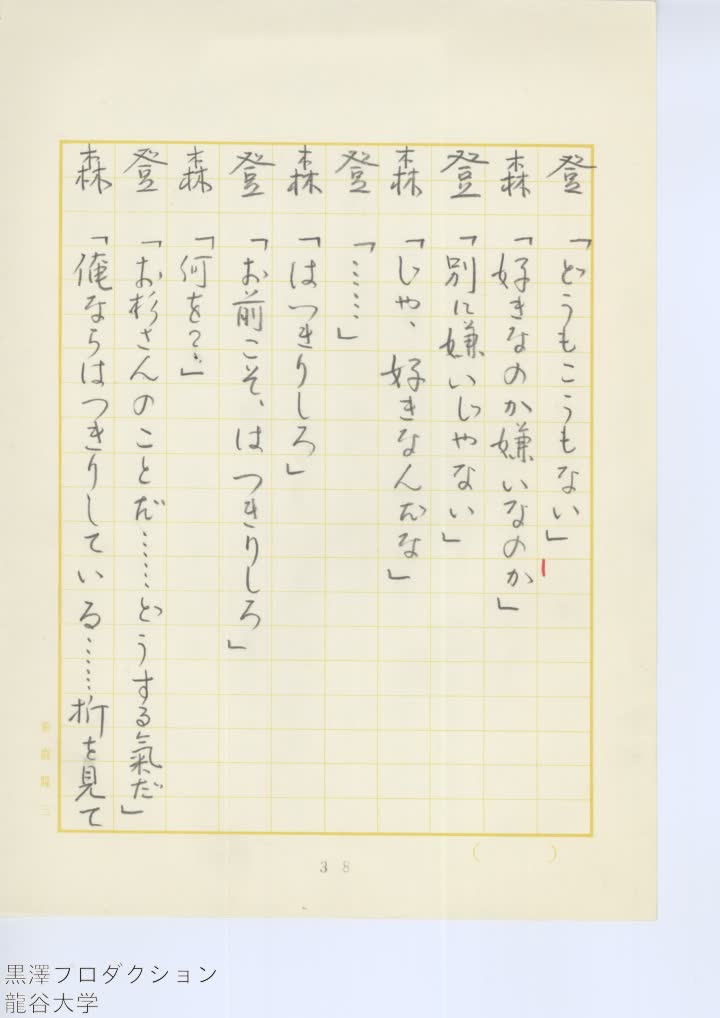 登「どうもこうもない」
森「好きなのか嫌いなのか」
登「別に嫌いじゃない」
森「じや、好きなんだな」
登「……」
森「はつきりしろ」
登「お前こそ、はつきりしろ」
森「何を?」
登「お杉さんのことだ……どうする氣だ」
森「俺ならはつきりしている……折を見て
( )
38
黒澤プロダクション
龍谷大学